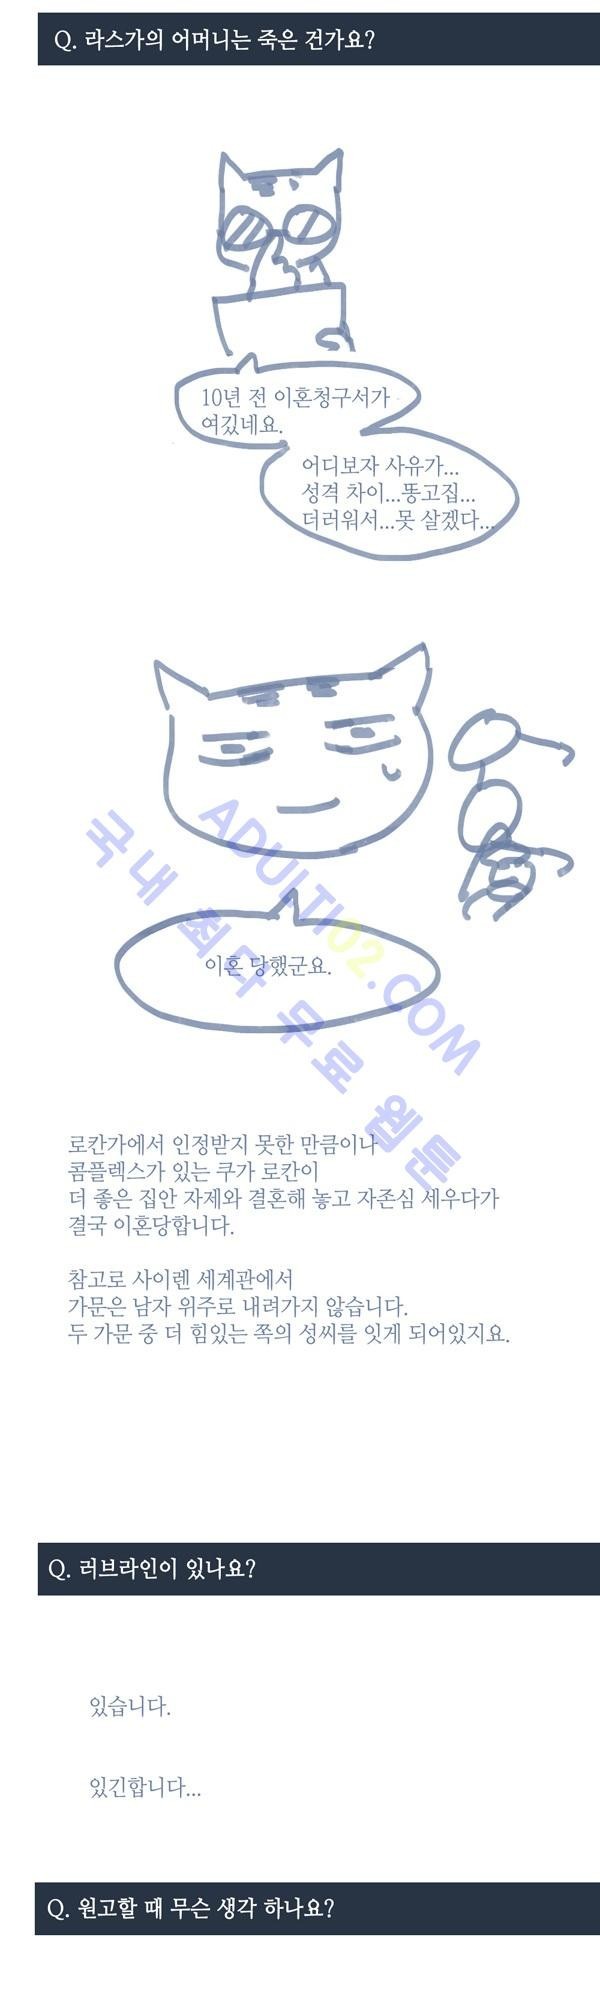 Q. 라스가의 어머니는 죽은 건가요?
10년 전 이혼청구서가
여깄네요.
어디보자 사유가...
성격 차이...똥고집...
더러워서...못 살겠다...
이혼 당했군요.
ADUITI02.COM
국내 최다 무료 웹툰
로칸가에서 인정받지 못한 만큼이나
콤플렉스가 있는 쿠가 로칸이
더 좋은 집안 자제와 결혼해 놓고 자존심 세우다가
결국 이혼당합니다.
참고로 사이렌 세계관에서
가문은 남자 위주로 내려가지 않습니다.
두 가문 중 더 힘있는 쪽의 성씨를 잇게 되어있지요.
Q. 러브라인이 있나요?
있습니다.
있긴합니다...
Q. 원고할 때 무슨 생각 하나요?